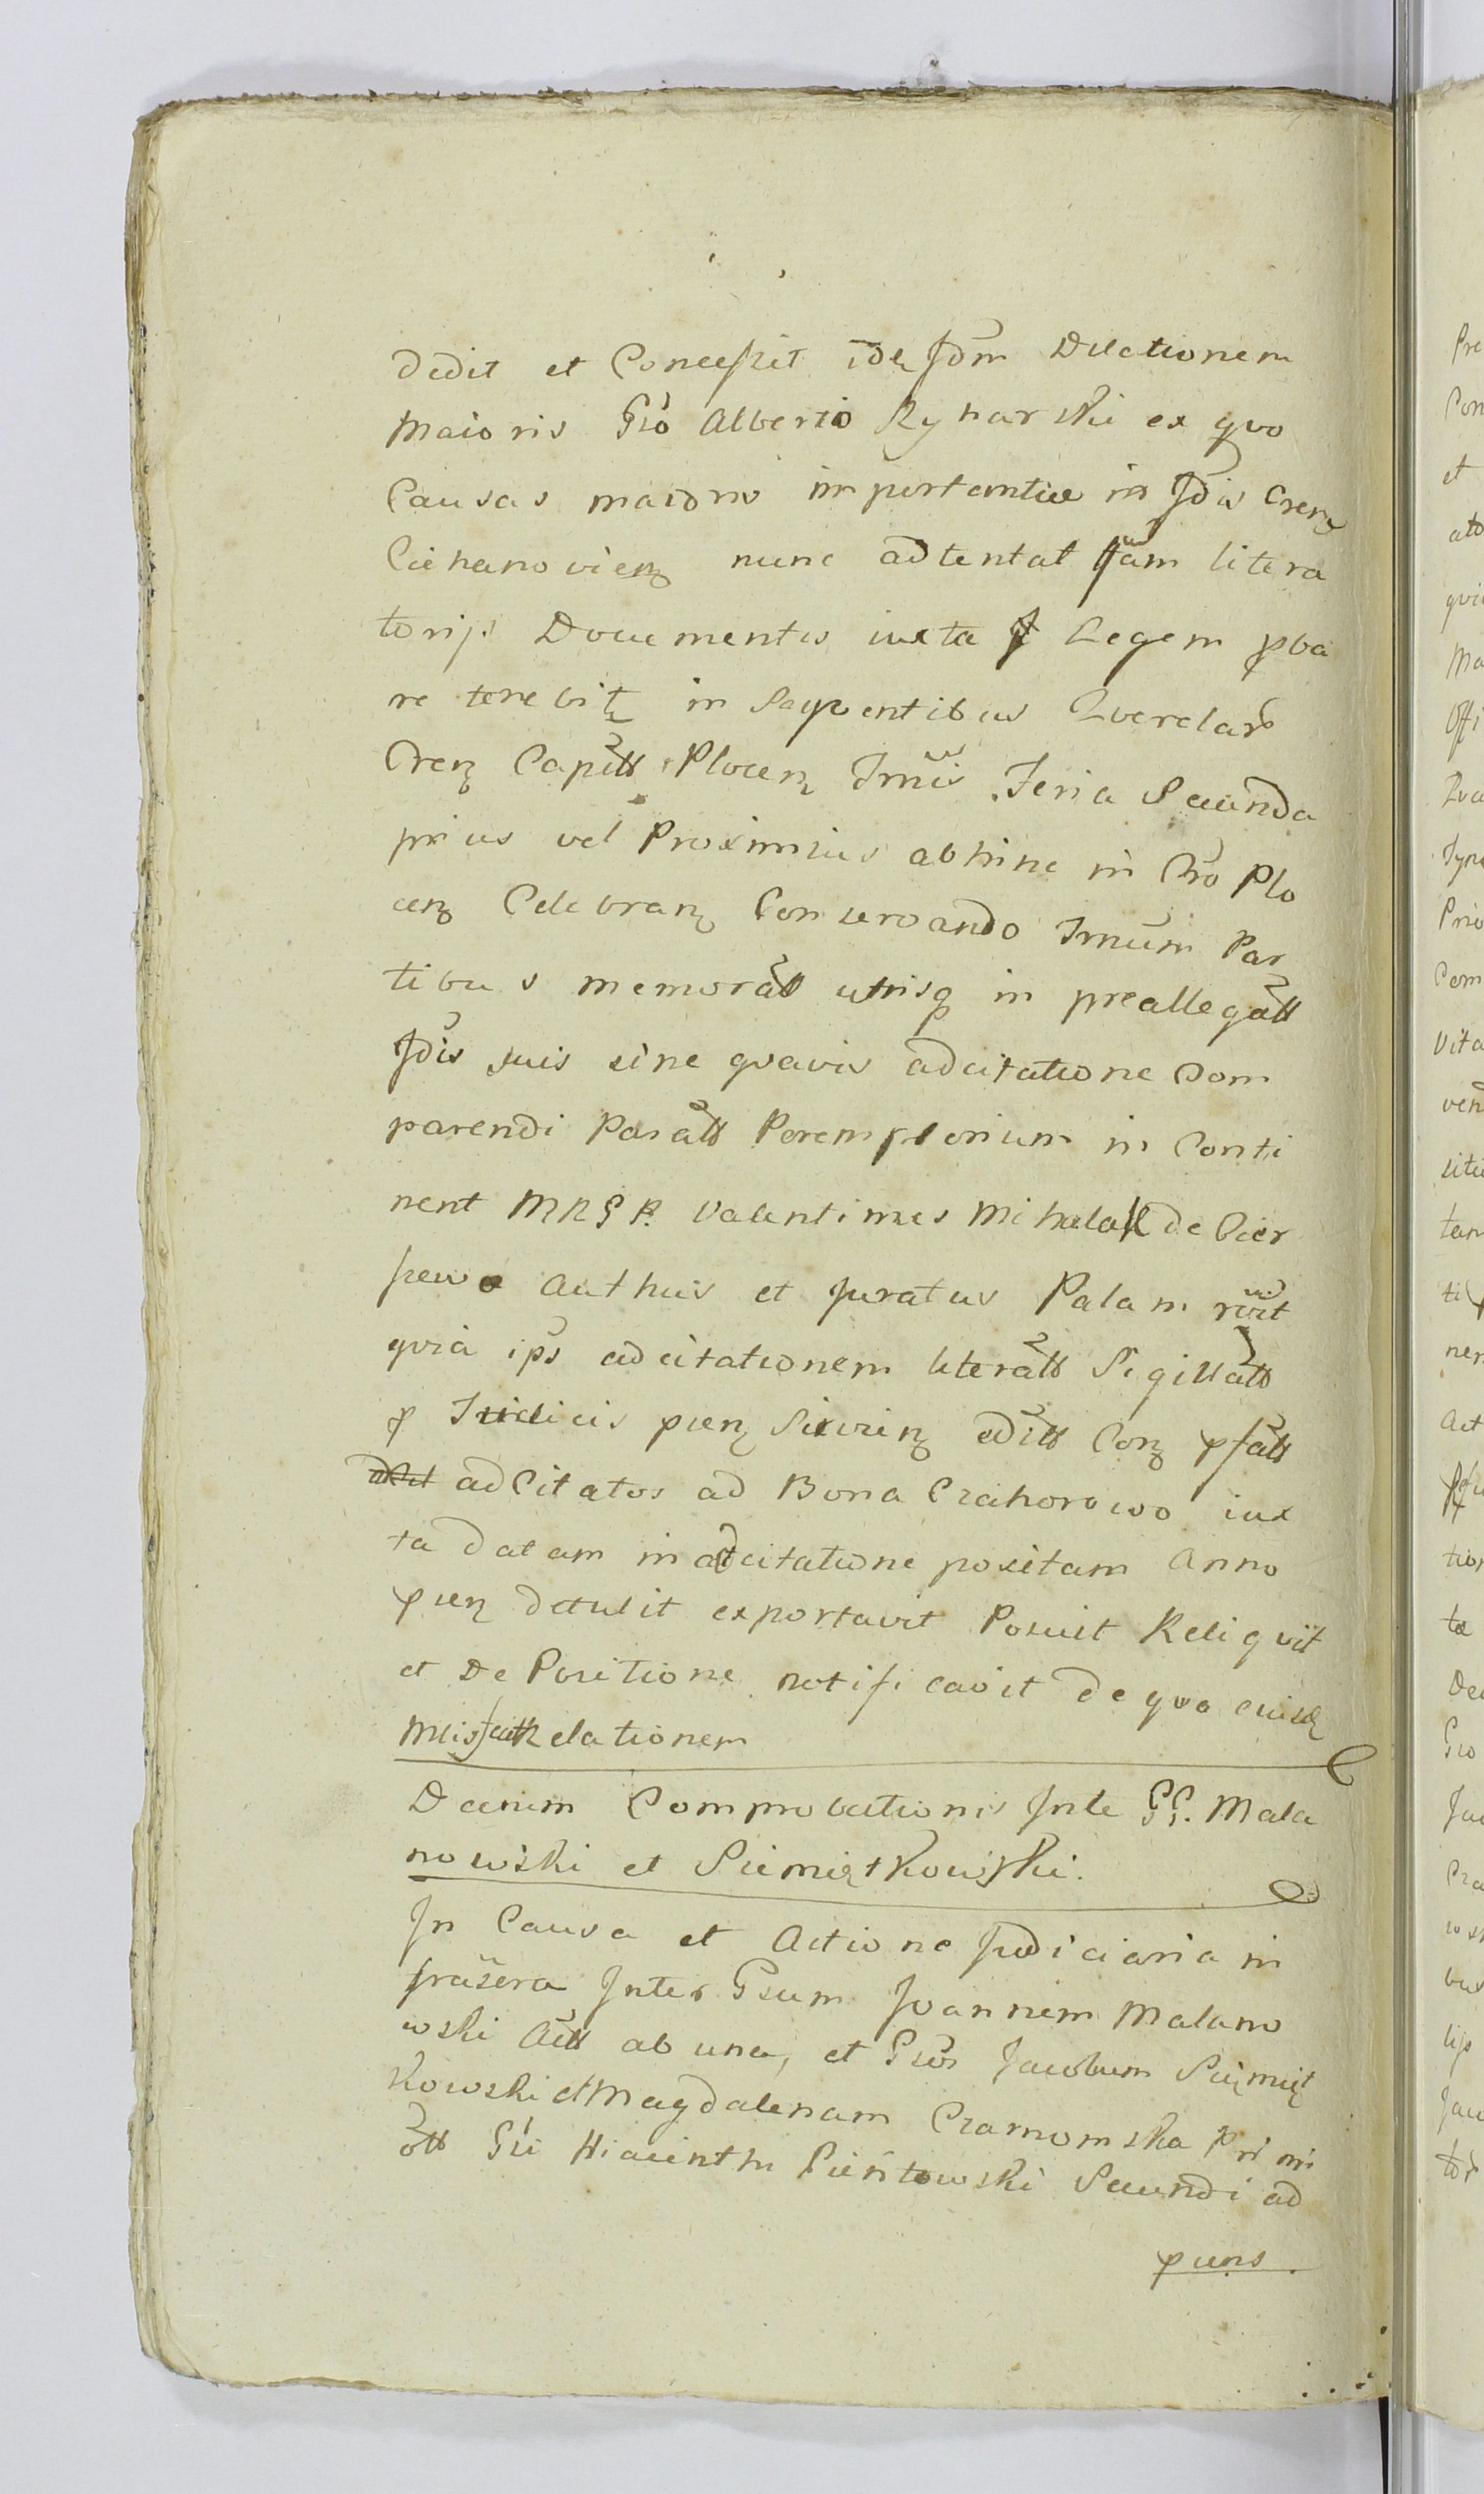 dedit et Concessit ideq Jdm Dilationem
maioris Gso Alberto Rynarski ex quo
Causas maioris importantiæ in Jdis Crenz
Ciehanovienz nunc adtentat litera
torijs Documentis iuxta Legem pba
re tenebitz in Seqventibus Qverelarb
Crenz Capitt Plocenz Trmis Feria Secunda
prius vel Proximius abhinc in Cro Plo
cenz Celebranz Conservando Trmum Par
tibus memoratt utrisq in preallegatt
Jdis suis sine qvavis adcitatione Com
parendi Paratt Peremptorium in Conti
nent MRGR. Valentinus Mihalak de Cier
pewo Authus et Juratus Palam rvit
qvia ips adcitationem literatt Sigillatt
p Iudicis pnenz Sixvienz editt Conz pfatt
adCitatos ad Bona Crahorowo iux
ta datam in adcitatione positam Anno
pnenz detulit exportavit Posuit Reliqvit
et De Positione notificavit de qvo eiusdz
Mlis relationem
Decrum Comprobationis Inte GG. Mala
nowski et Siemiątkowski.
In Causa et Actione Judiciaria in
frascra Inter Gsum Joannem Malano
wski Actt ab una, et Gsos Jacobum Siemiąt
kowski et Magdalenam Czarnomska Primi
ott Gsi Hiacinthi Pientowski Secundi ad
pnens